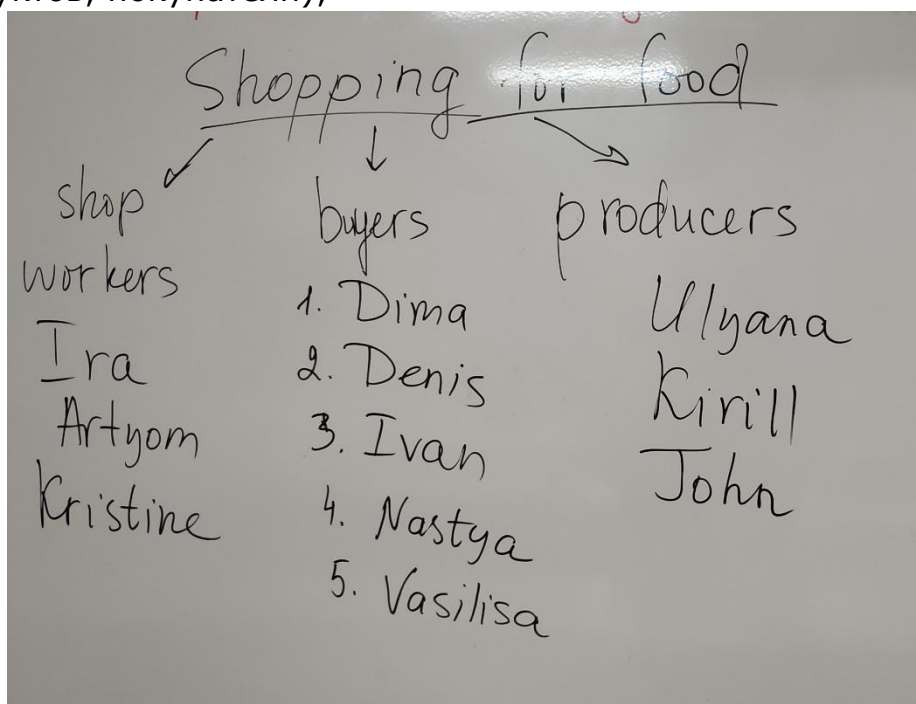 Shopping for food
shop
workers
Ira
Artyom
Kristine
buyers
1. Dima
2. Denis
3. Ivan
4. Nastya
5. Vasilisa
producers
Ulyana
Kirill
John